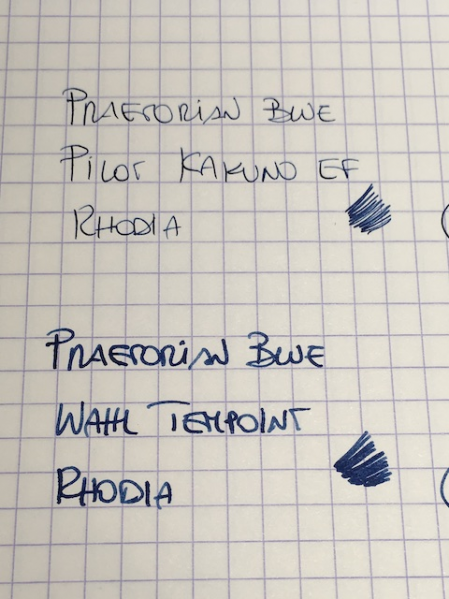 PRAETORIAN BLUE
PILOT KAKUNO EF
RHODIA
PRAETORIAN BLUE
WAHL TEMPOINT
RHODIA